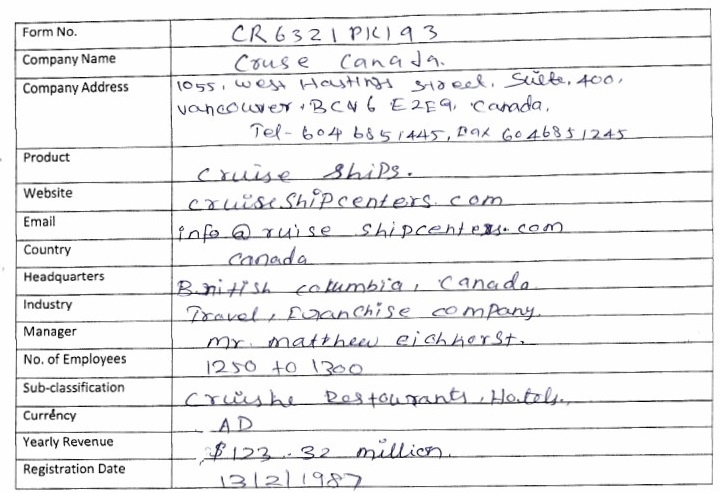 Form No. CR6321PK193
Company Name Cruse Canada.
Company Address 1055, West Hastings street, Suite, 400,
Vancouver, BCV6 E2E9, Canada,
Tel- 604 6851445, Fax 6046851245
Product Cruise Ships.
Website cruiseshipcenters.com
Email info@ruise shipcenters.com
Country Canada
Headquarters British columbia, Canada
Industry Travel, Franchise company.
Manager Mr. matthew eichhorst.
No. of Employees 1250 to 1300
Sub-classification Cruishe Restourants, Hotels,
Currency AD
Yearly Revenue $123.32 million.
Registration Date 13/2/1987